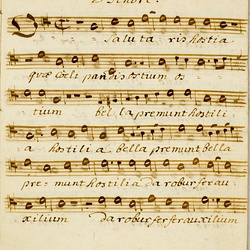 Tenore.
O saluta ris hostia
quæ Cœli pandis ostium os
tium bel la premunt hostili
a hostili a bella premunt bella
pre- munt hostilia da robur fer au-
xilium da robur fer fer auxilium